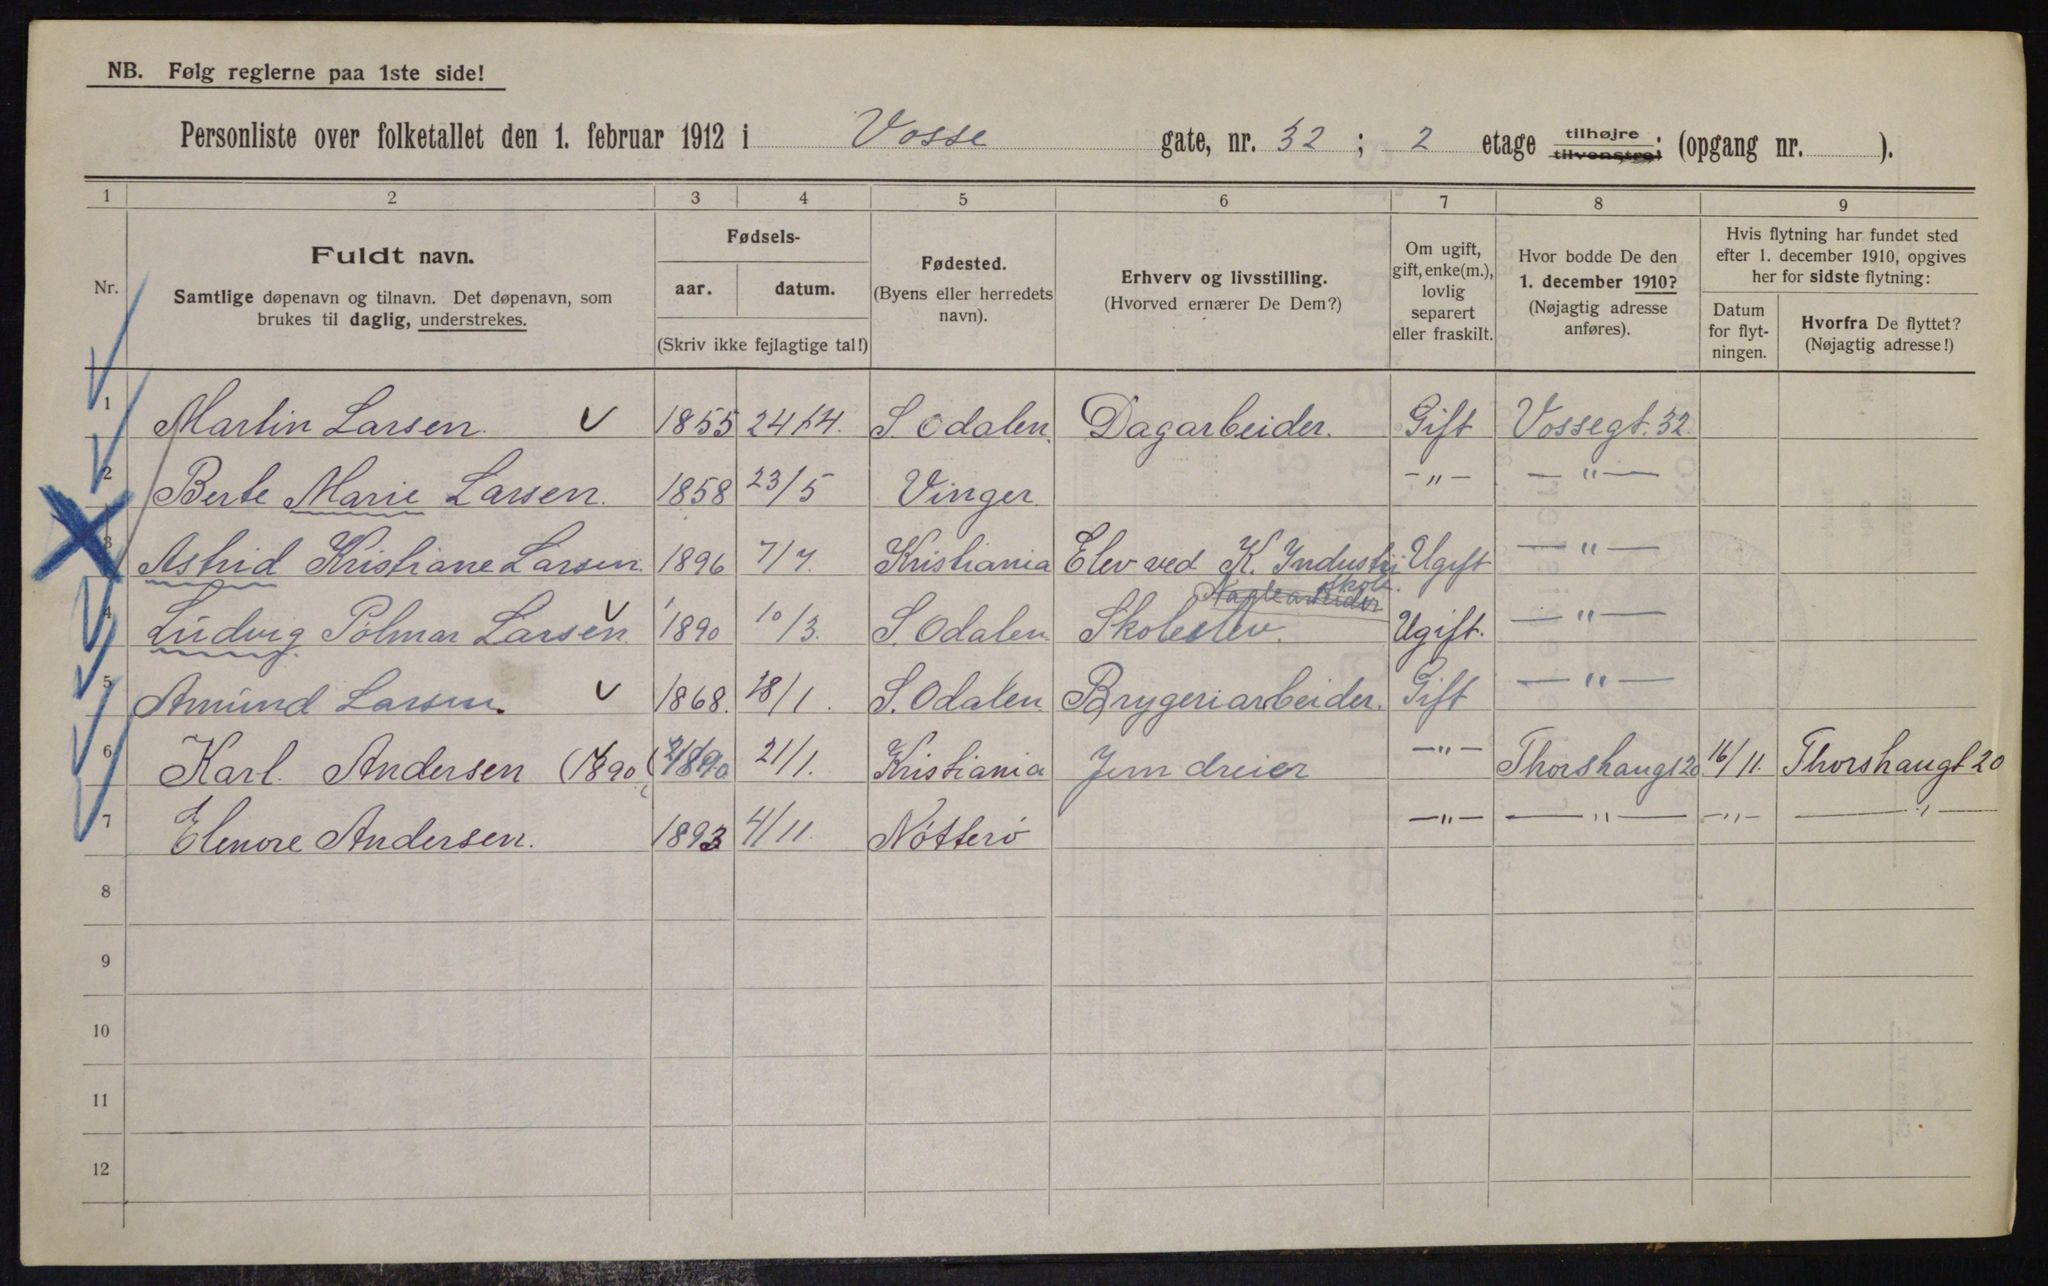 NB. Følg reglerne paa 1ste side!
Personliste over folketallet den 1. februar 1912 i Vosse gate, nr. 32 ; 2 etage tilhøjre tilvenstre; (opgang nr. ).
1 2 3 4 5 6 7 8 9
Nr.
Fuldt navn.
Samtlige døpenavn og tilnavn. Det døpenavn, som
brukes til daglig, understrekes.
Fødsels-
aar. datum.
(Skriv ikke fejlagtige tal!)
Fødested.
(Byens eller herredets
navn).
Erhverv og livsstilling.
(Hvorved ernærer De Dem?)
Om ugift,
gift, enke(m.),
lovlig
separert
eller fraskilt.
Hvor bodde De den
1. december 1910?
(Nøjagtig adresse
anføres).
Hvis flytning har fundet sted
efter 1. december 1910, opgives
her for sidste flytning:
Datum
for flyt-
ningen.
Hvorfra De flyttet?
(Nøjagtig adresse!)
1 Martin Larsen. 1855 24/4. S. Odalen. Dagarbeider. Gift Vossegt. 32.
2 Berte Marie Larsen. 1858 23/5 Vinger — " — — " —
3 Astrid Kristiane Larsen. 1896 7/7. Kristiania Elev ved K. Industri Ugift — " —
skole.
4 Ludvig Polmar Larsen 1890 10/3. S. Odalen. Skoleelev. Ugift. — " —
5 Amund Larsen. 1868. 28/1. S. Odalen. Brygeriarbeider. Gift — " —
6 Karl. Andersen (1890) 1890 21/1. Kristiania Jerndreier — " — Thorshaugt 20 16/11. Thorshaugt 20
7 Elenore Andersen. 1893 4/11. Nötterö — " — — " — — " — — " —
8
9
10
11
12